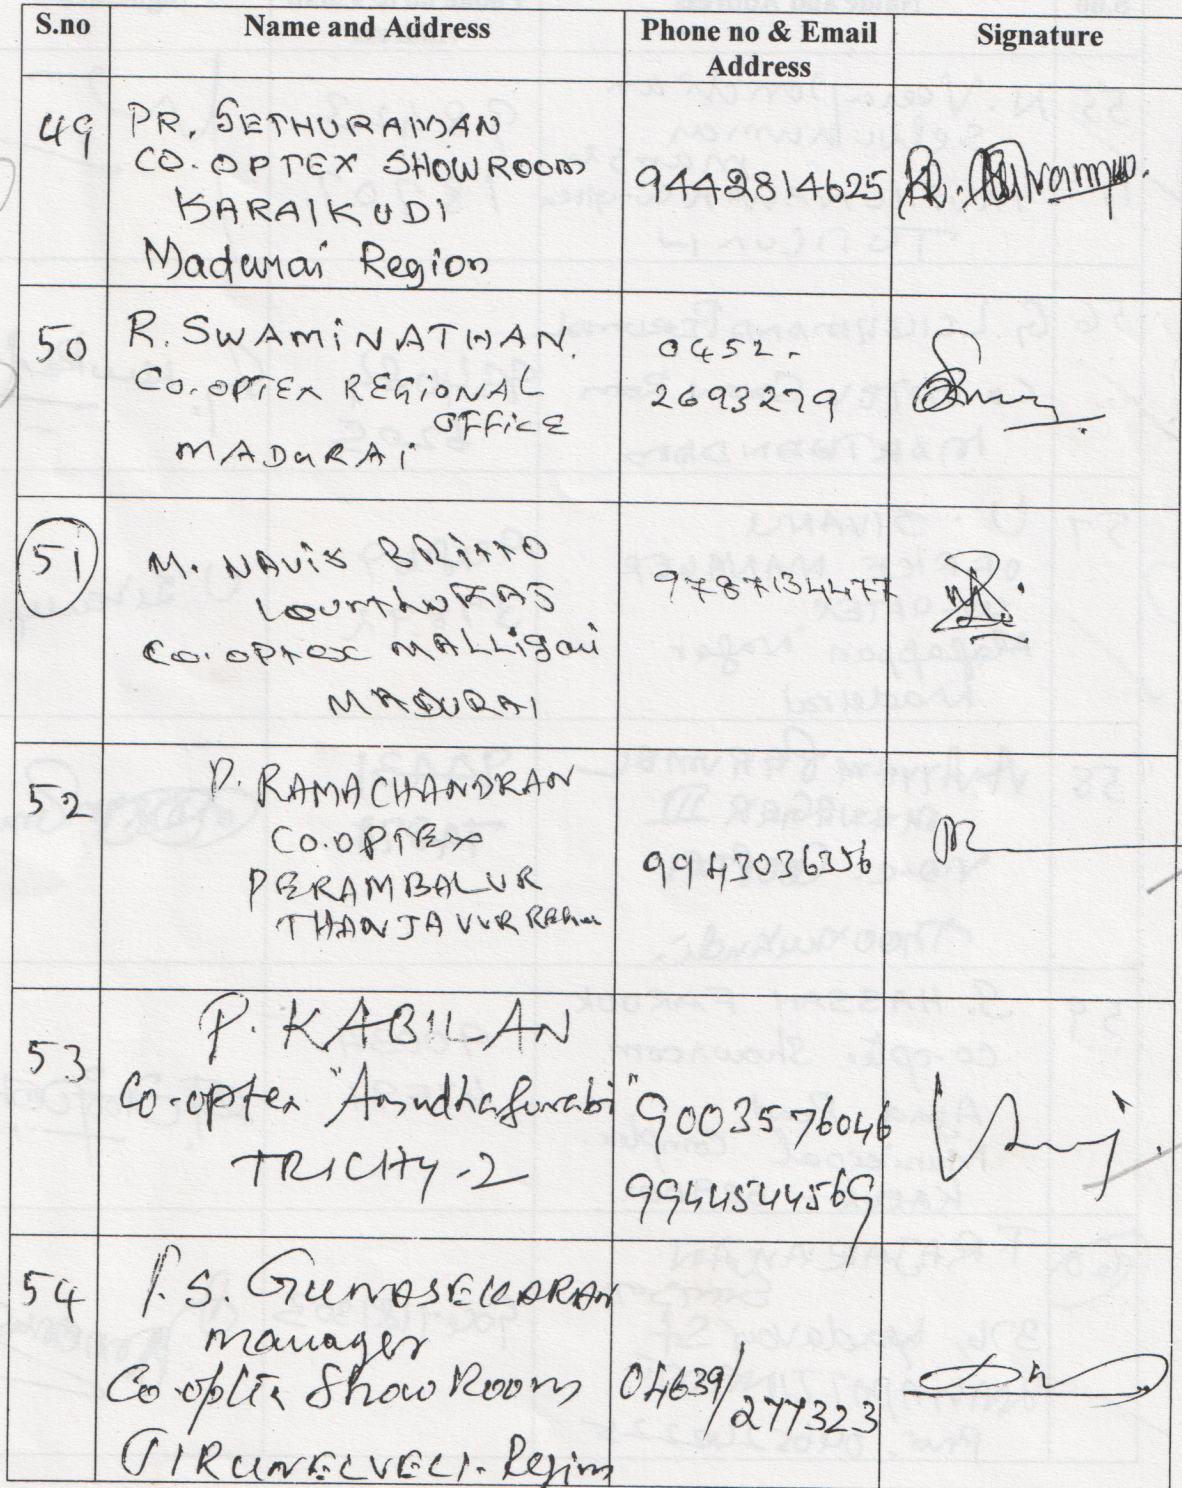 S.no Name and Address Phone no & Email Address Signature
49 PR. SETHURAMAN
CO.OPTEX SHOWROOM
KARAIKUDI
Madurai Region
9442814625
50 R. SWAMiNATHAN.
CO.OPTEX REGiONAL
OFFiCE
MADURAi
0452.
2693279
51 M. NAVIS BRiTTO
LOURTHURAJ
CO.OPTEX MALLigai
MADURAI
9787134477
52 P. RAMACHANDRAN
CO.OPTEX
PERAMBALUR
THANJAVUR
9943036356
53 P. KABILAN
Co-optex "Amudhasurabi"
TRICHY-2
9003576046
9944544569
54 P.S. GUNASEKARAN
manager
Co-optex Show Room
TIRUNELVELI. Region
04639/
277323